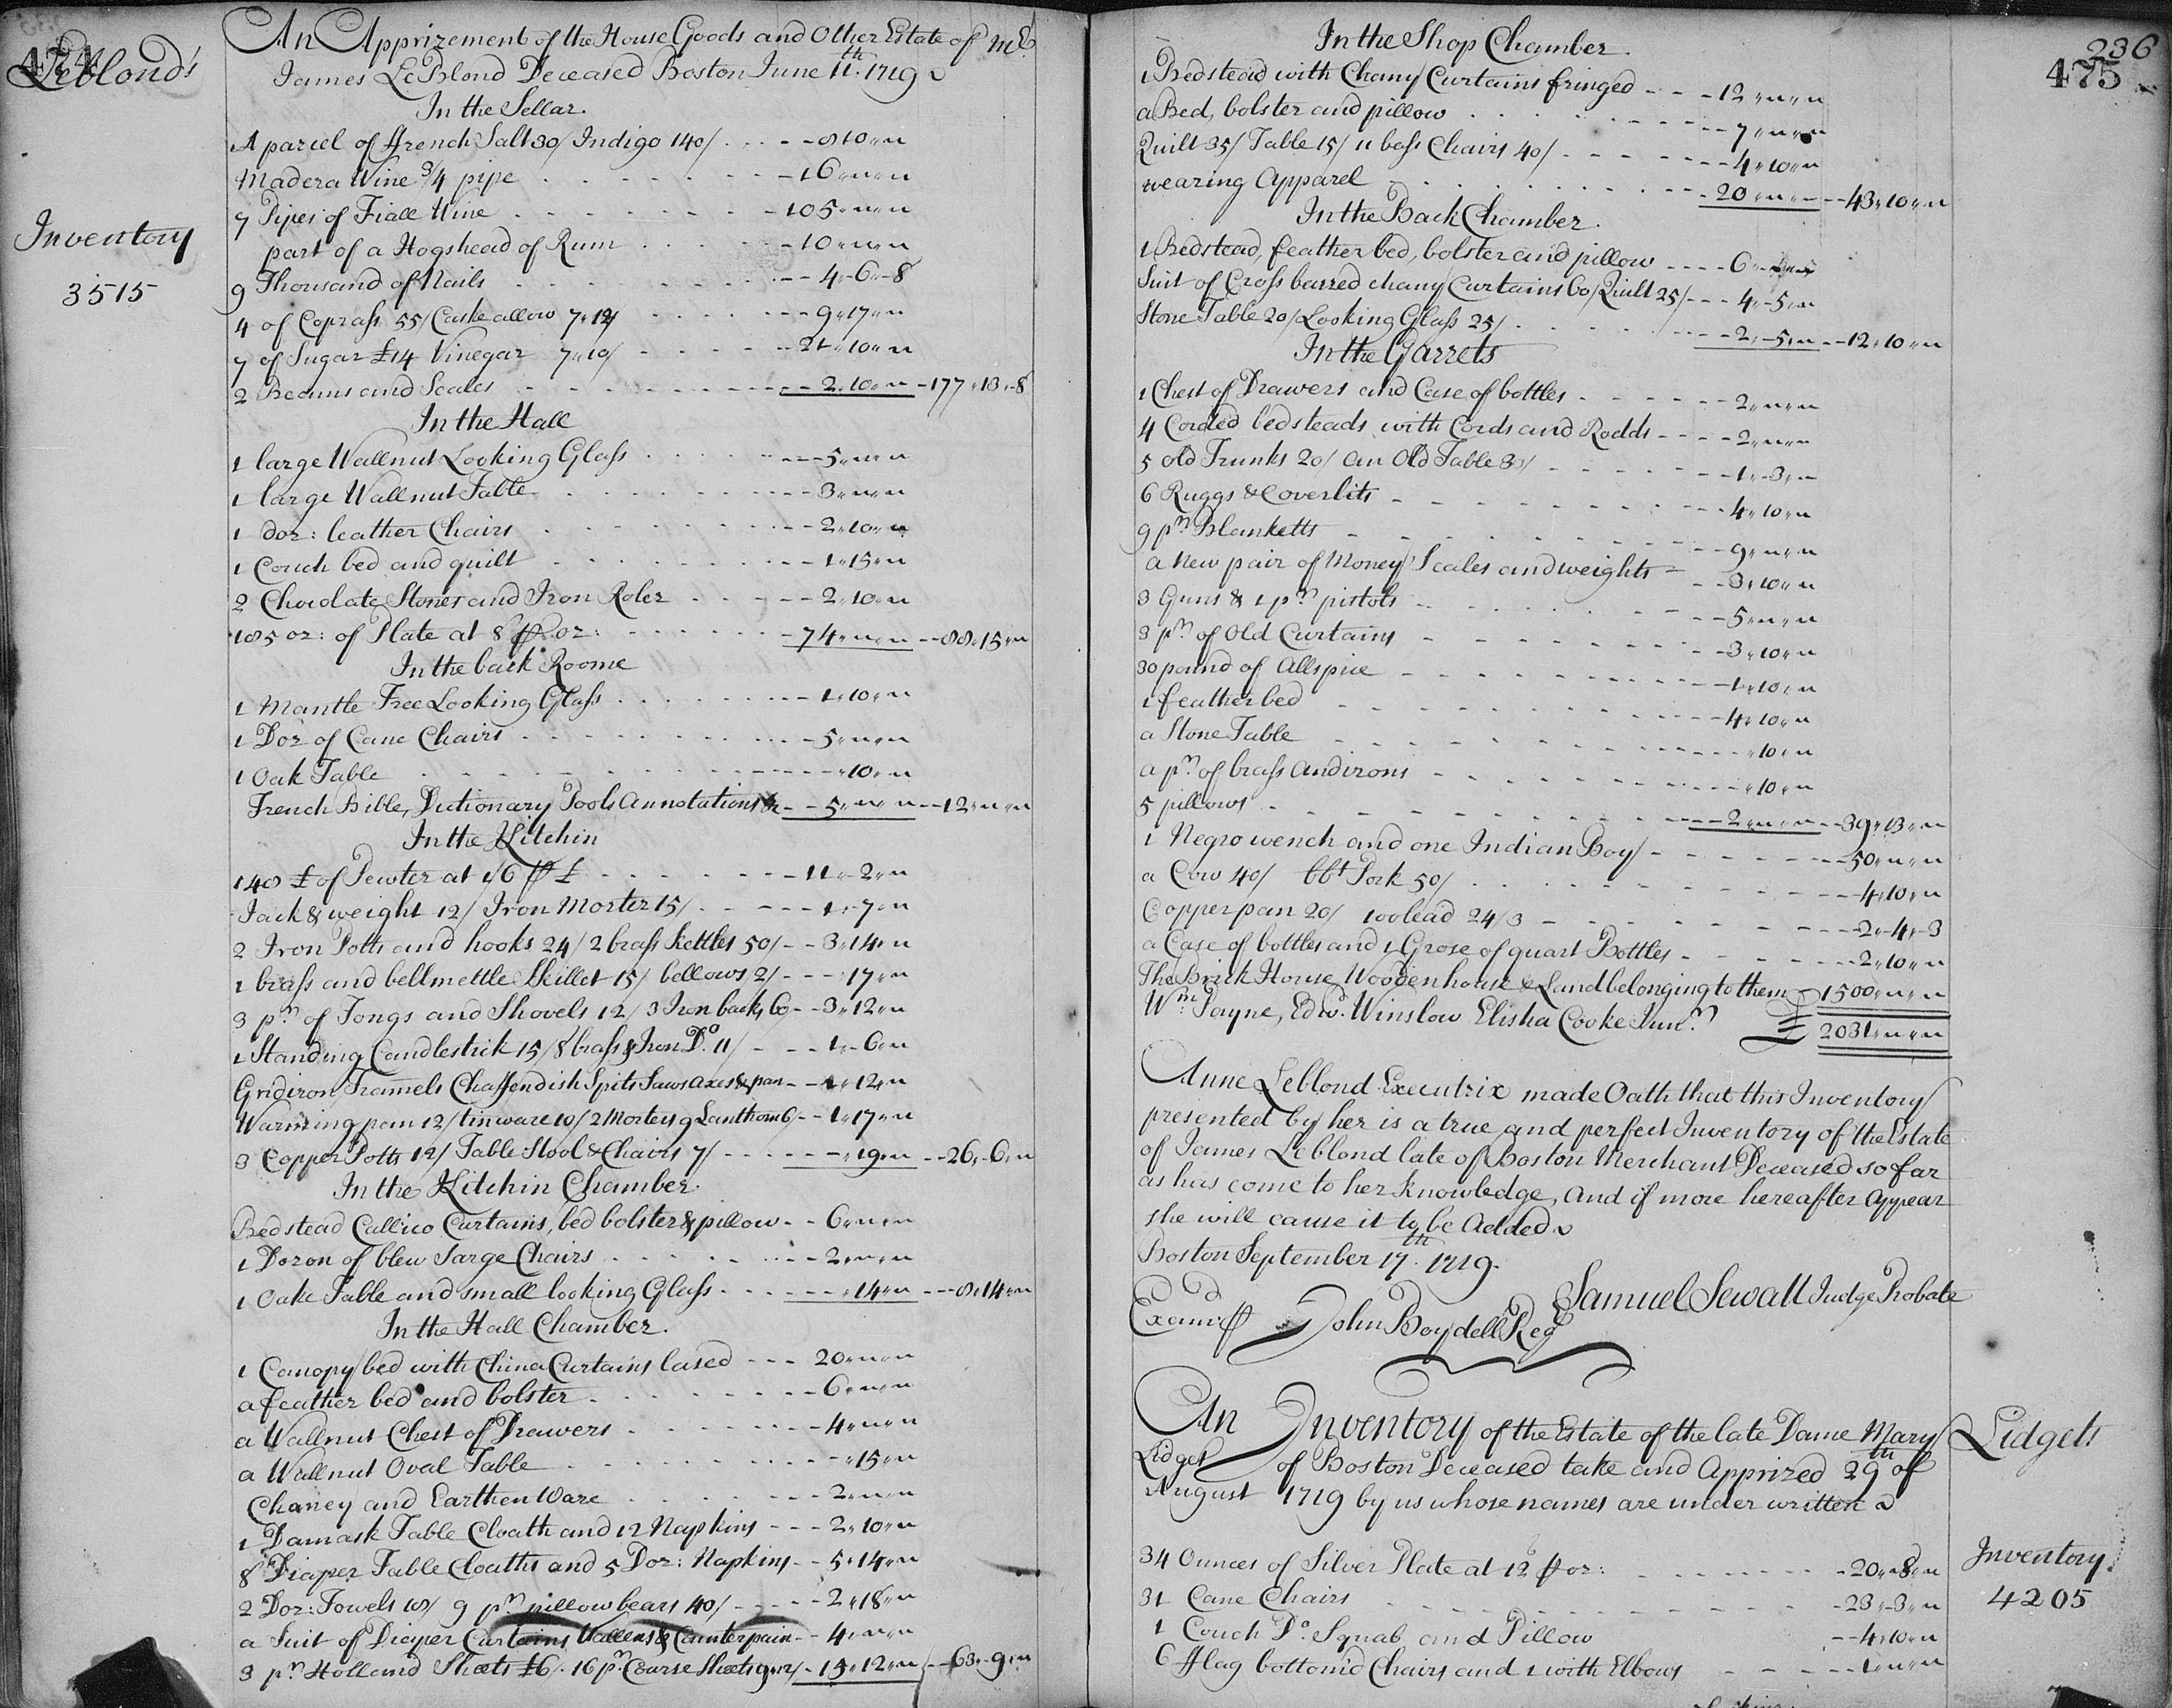 474
Leblond's
Inventory
3515
An Apprizement of the House Goods and Other Estate of Mr.
James LeBlond Deceased Boston June 11th. 1719
In the Sellar.
A parcel of ffrench Salt 30/ Indigo 140/ - - 8 10 " "
Madera Wine 3/4 pipe - 16 " " "
7 Pipes of Fiall Wine - 105 " " "
part of a Hogshead of Rum - 10 " " "
9 Thousand of Nails - - 4 " 6 " 8
4 of Coprass 55/ Caske allow 7 " 12/ - - 9 " 17 " "
7 of Sugar £14 Vinegar 7 " 10/ - - 21 " 10 " "
2 Beams and Scales - - 2 " 10 " " - 177 " 13 " 8
In the Hall
1 large Wallnut Looking Glass - - 5 " " "
1 large Wallnut Table - - 3 " " "
1 doz: leather Chairs - - 2 " 10 " "
1 Couch bed and quilt - - 1 " 15 " "
2 Chocolate Stones and Iron Roler - - 2 " 10 " "
185 oz: of Plate at 8/ ℔ oz: - 74 " " " - - 88 " 15 " "
In the back Roome
1 Mantle Tree Looking Glass - - 1 " 10 " "
1 Doz of Cane Chairs - - 5 " " "
1 Oak Table - - " 10 " "
French Bible, Dictionary Pools Annotations &c - - 5 " " " - - 12 " " "
In the Kitchin
148 £ of Pewter at 1/6 ℔ £ - 11 " 2 " "
Jack & weight 12/ Iron Morter 15/ - - 1 " 7 " "
2 Iron Potts and hooks 24/ 2 brass kettles 50/ - - 3 " 14 " "
1 brass and bellmettle Skillet 15/ bellows 2/ - - - " 17 " "
3 pr. of Tongs and Shovels 12/ 3 Iron backs 60 - - 3 " 12 " "
1 Standing Candlestick 15/ 8 brass & Iron Do. 11/ - - - 1 " 6 " "
Gridiron Tramels Chaffendish Spits Saws axes & pan - - 4 " 12 " "
Warming pan 12/ tinware 10/ 2 Morters 9 Lanthorn 6/ - - 1 " 17 " "
3 Copper Potts 12/ Table Stool & Chairs 7/ - - - " 19 " " - - 26 " 6 " "
In the Kitchin Chamber.
Bedstead Callico Curtains, bed bolster & pillow - - 6 " " "
1 Dozon of blew Sarge Chairs - - 2 " " "
1 Oake Table and small looking Glass - - " 14 " " - - - 8 " 14 " "
In the Hall Chamber.
1 Canopy bed with China Curtains laced - - - 20 " " "
a feather bed and bolster - - 6 " " "
a Wallnut Chest of Drawers - 4 " " "
a Wallnut Oval Table - - " 15 " "
Chaney and Earthen Ware - - 2 " " "
1 Damask Table Cloath and 12 Napkins - - - 2 " 10 " "
8 Diaper Table Cloaths and 5 Doz: Napkins - - 5 " 14 " "
2 Doz: Towels 18/ 9 pr. pillowbears 40/ - - 2 " 18 " "
a Suit of Diaper Curtains Vallens & Counterpain - - 4 " " "
3 pr. Holland Sheets £6/. 16 pr. Coarse Sheets 9 " 12/ - 15 " 12 " " - - 63 " 9 " "
236
475
In the Shop Chamber.
1 Bedstead with Chany Curtains fringed - - - 12 " " "
a Bed, bolster and pillow - - 7 " " "
Quilt 35/ Table 15/ 11 bass Chairs 40/ - - 4 " 10 " "
wearing Apparel - 20 " " " - - 43 " 10 " "
In the Back Chamber.
1 Bedstead, feather bed, bolster and pillow - - - - 6 " " "
Suit of Cross barred chany Curtains 60/ Quilt 25/ - - - 4 " 5 " "
Stone Table 20/ Looking Glass 25/ - - 2 " 5 " " - - 12 " 10 " "
In the Garrets
1 Chest of Drawers and Case of bottles - - 2 " " "
4 Corded bedsteads with Cords and Rodds - - - - 2 " " "
5 old Trunks 20/ an Old Table 3/ - - 1 " 3 " "
6 Ruggs & Coverlits - - 4 " 10 " "
9 pr. Blanketts - - 9 " " "
a new pair of Money Scales and weights - - 3 " 10 " "
3 Guns & 1 pr. pistols - - 5 " " "
3 pr. of Old Curtains - - 3 " 10 " "
30 pound of Allspice - - 1 " 10 " "
1 feather bed - - 4 " 10 " "
a Stone Table - - " 10 " "
a pr. of brass Andirons - - " 10 " "
5 pillows - - 2 " " " - - 39 " 13 " "
1 Negro wench and one Indian Boy - - 50 " " "
a Cow 40/ bbt Pork 50/ - - 4 " 10 " "
Copper pan 20/ 100 lead 24/3 - - 2 " 4 " 3
a Case of bottles and 1 Grose of quart Bottles - - 2 " 10 " "
The Brick House, Woodenhouse & Land belonging to them - 1500 " " "
Wm. Payne, Edwd. Winslow Elisha Cooke Junr. £ 2031 " " "
Anne Leblond Executrix made Oath that this Inventory
presented by her is a true and perfect Inventory of the Estate
of James Leblond late of Boston Merchant Deceased so far
as has come to her knowledge, and if more hereafter Appear
she will cause it to be Added
Boston September 17th. 1719.
Samuel Sewall Judge Probate
Examd ℔ John Boydell Reg
An Inventory of the Estate of the late Dame Mary
Lidget of Boston Deceased take and Apprized 29th of
August 1719 by us whose names are under written
Lidgets
Inventory
4205
34 Ounces of Silver Plate at 12 ℔ oz: - 20 " 8 " "
31 Cane Chairs - 23 " 3 " "
1 Couch Do. Squab and Pillow - - 4 " 10 " "
6 fflag bottom'd Chairs and 1 with Elbows - - 1 " " "